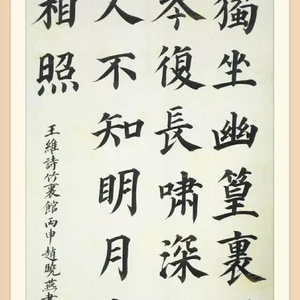 獨坐幽篁裏
琴復長嘯深
人不知明月
相照
王維詩竹裏館丙申趙曉燕書